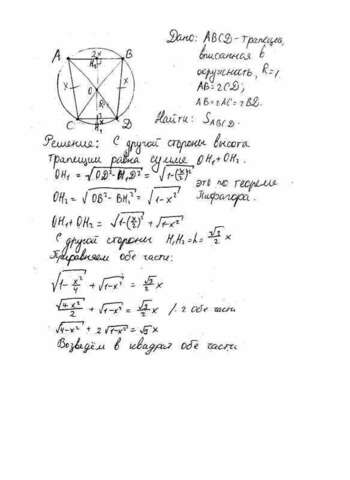 Дано: ABCD - трапеция,
вписанная в
окружность, R=1,
AB=2CD,
AB=2AC=2BD.
Найти: S_ABCD.
A 2x B
H₂
x O x
R=1
C x D
H₁
Решение: С другой стороны высота
трапеции равна сумме OH₁+OH₂.
OH₁ = √(OD²-H₁D²) = √(1-(x/2)²) это по теореме
OH₂ = √(OB²-BH₂²) = √(1-x²) Пифагора.
OH₁+OH₂ = √(1-(x/2)²) + √(1-x²)
С другой стороны H₁H₂=h= √3/2 x
Приравняем обе части:
√(1-x²/4) + √(1-x²) = √3/2 x
√(4-x²)/2 + √(1-x²) = √3/2 x /·2 обе части
√(4-x²) + 2√(1-x²) = √3 x
Возведём в квадрат обе части